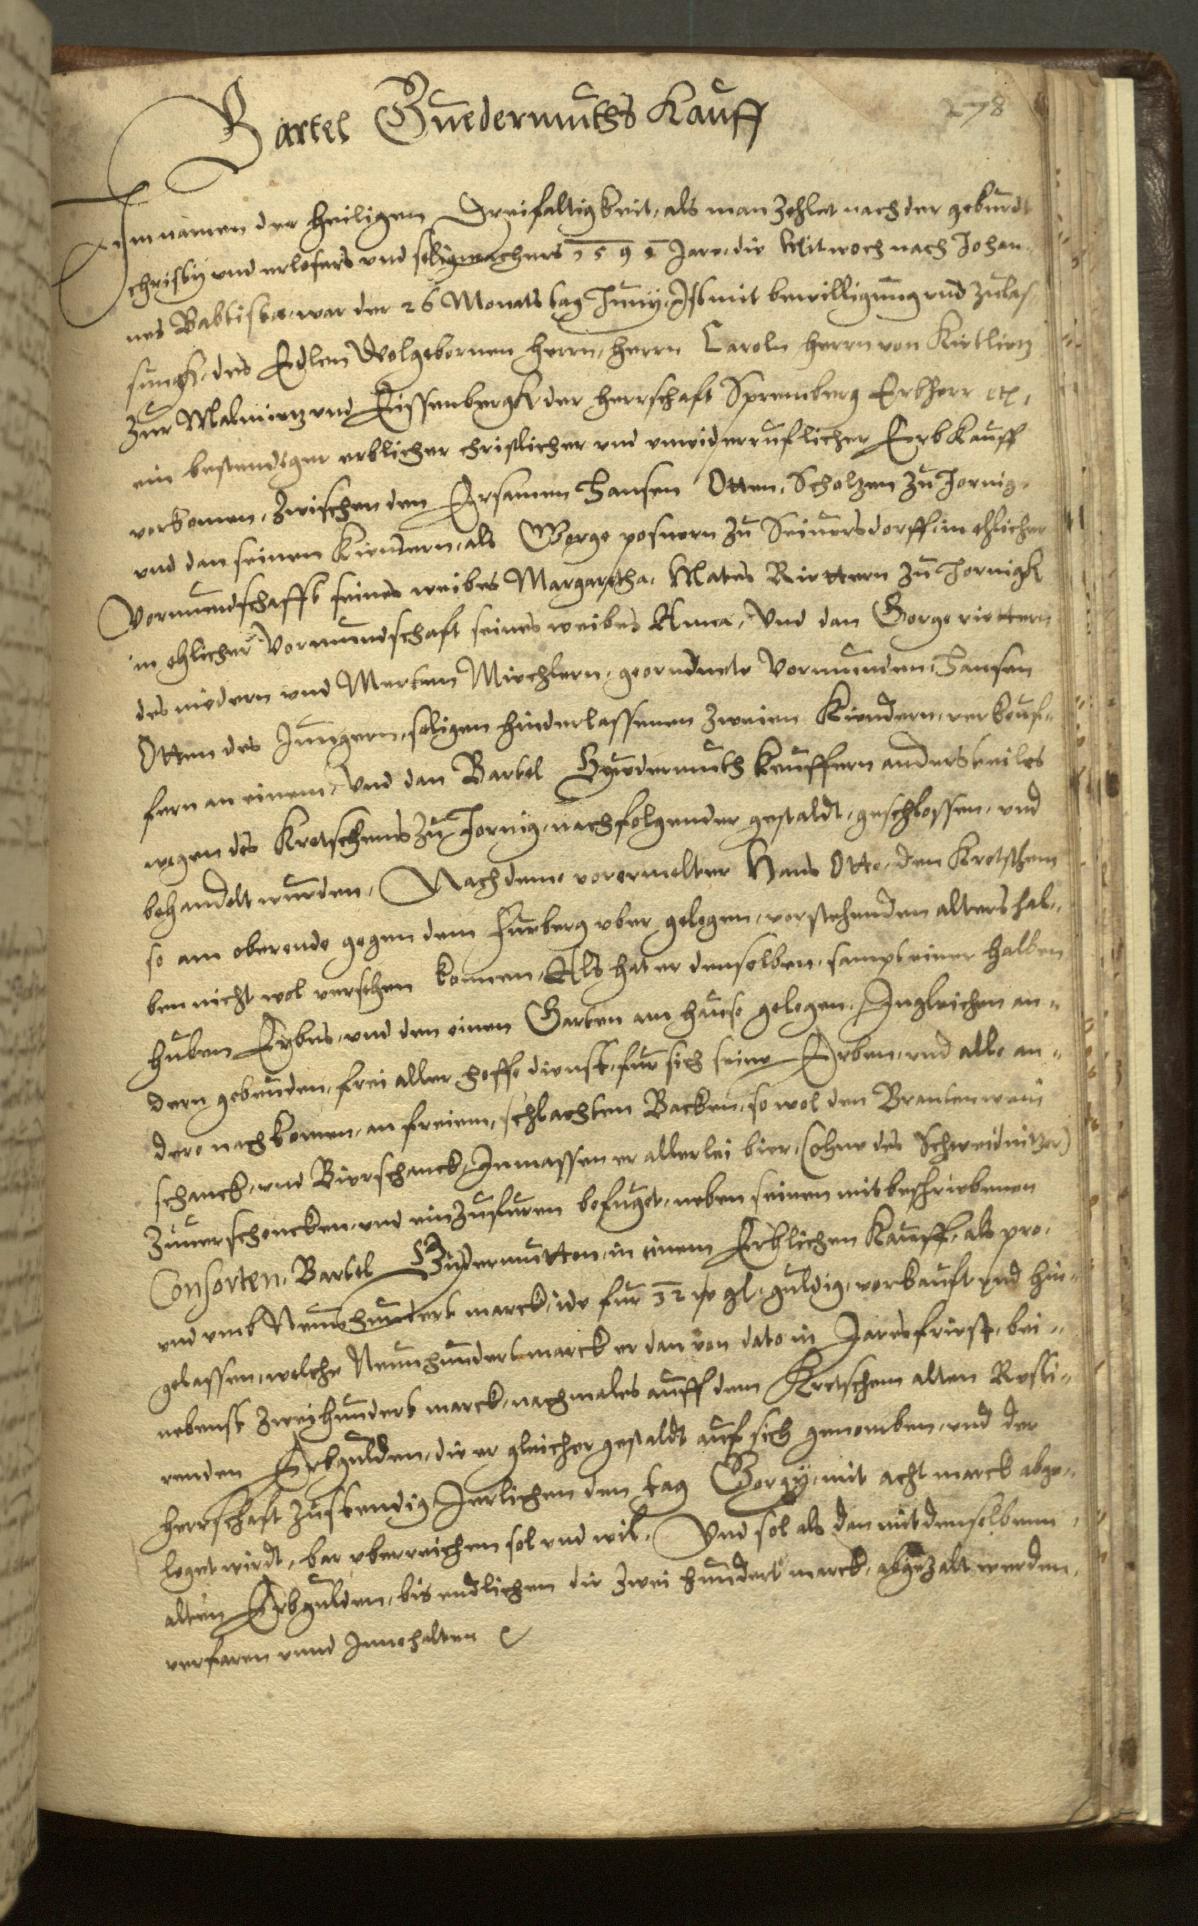 278
Bartel Guedermuths Kauff
Im namen der heiligen Dreifaltigkeit, als man zehlet nach der geburdt
christy und erlosers und seligmachers 159 Jare, die Mitwoch nach Johan
nes Babtista war der 26 Monats tag Juny, Ist mit bewilligung und zulas
sungk, des Edlen Wolgebornen herrn, herrn Caroln herrn von Kittlitz
zur Malmitz und Eissenbergk der herrschaft Spremberg Erbherr etc,
ein bestendiger erblicher christlicher und unwiderruflicher Erb Kauff
vorkomen, zwischen den Ersamen Hansen Otten, Scholzen zu Jornig,
und dan seinen Kiendern, als George posnern zu Seiuersdorff, in ehlicher
Vormundschafft seines weibes Margaretha, Mates Riettern zu Jornigk
in ehlicher Vormundschaft seines weibes Anna, Und dan George riettern
des niedern und Merten Miechlern, geordnete Vormunden, Hansen
Otten des Jungern, seligen hinderlassenen zweien Kiendern, verkeuf-
fern an einem, Und dan Bartel Guedermuth keuffern anders teiles
wegen des Kretschems zu Jornig, nachfolgender gestaldt, geschlossen, und
behandelt wurden, Nachdeme vorermelter Hans Otte, den Kretschem
so am oberende gegen dem furberg uber gelegen, vorstehenden alters hal-
ben nicht wol versehen konnen, Als hat er denselben, sampt einer halben
huben Erbes, und den einen Garten am hause gelegen, Ingleichen an-
dern gebeuden, frei aller hoffe dienste, fur sich seine Erben, und alle an-
dere nachkomen, an freiem, schlachten Backen, so wol den Brantenwein
schanck, und Bierschanck, Inmassen er allerlei bier, (ohne des Schweidnitzer)
zuuerschencken, und einzufuren befuget, neben seinen mitbeschriebenen
Consorten, Bartel Guedermutten, in einem Erblichen Kauff, als pro,
und umb Neunhundert marck, ide fur 32 w gl. guldig, verkauft und hin-
gelassen, welche Neunhundert marck er dan von dato in Jaresfriest, bei-
nebenst zweihundert marck, nachmales auff dem Kretschem alten Resti-
renden Erbgulden, die er gleicher gestaldt auf sich genomben, und der
herrschaft zustendig, Jerlichen den tag Georgy, mit acht marck abge-
leget wirdt, bar uberreichen sol und wil, Und sol als dan mit denselbenn
alten Erbgulden, bis endlichen die zwei hundert marck, abgezalt werden,
verfaren unnd Innehalten